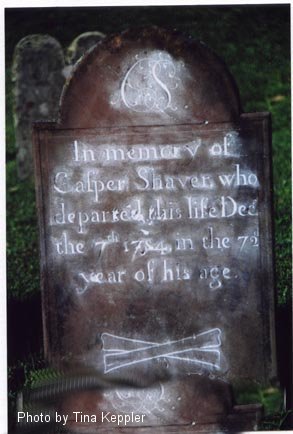 CS
In memory of
Casper Shaver, who
departed this life Dec
the 7th 1784 in the 72d
year of his age.
Photo by Tina Keppler